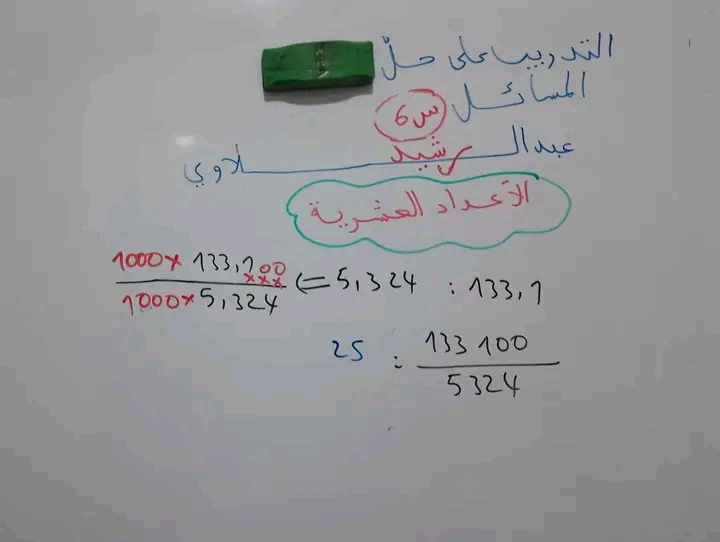 التدريب على حلّ
المسائل س6
عبدالرشيد لاوي
الأعداد العشرية
1000× 133,100 / 1000×5,324 <= 5,324 : 133,1
25 : 133 100 / 5324